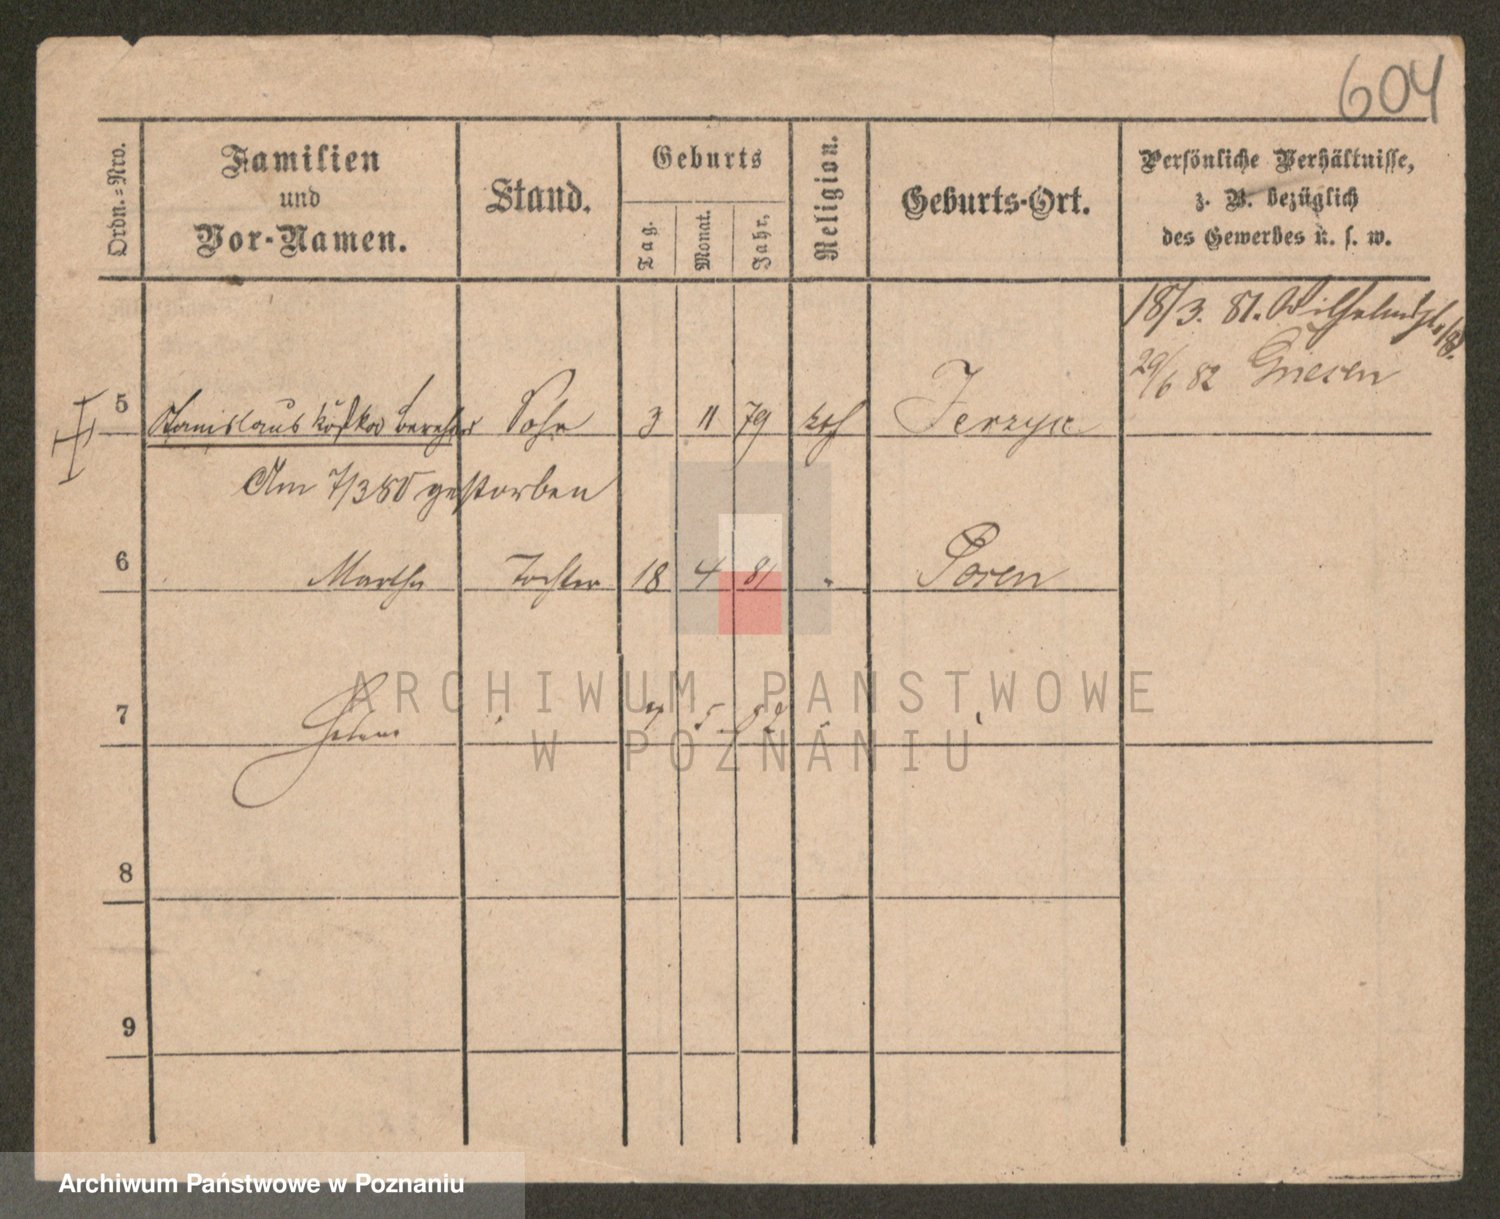 604
Ordn.=Nro.
Familien
und
Vor-Namen.
Stand.
Geburts
Tag.
Monat.
Jahr,
Religion.
Geburts-Ort.
Persönliche Verhältnisse,
z. B. bezüglich
des Gewerbes u. s. w.
18/3. 81. Wilhelmspl.
29/6 82 Gnesen
5 Stanislaus Kostka Sohn 3 11 79 kth Jerzyce
Am 7/3 80 gestorben
6 Martha Tochter 18 4 81 " Posen
7 Helene 7 5 82
8
9
ARCHIWUM PAŃSTWOWE
W POZNANIU
Archiwum Państwowe w Poznaniu